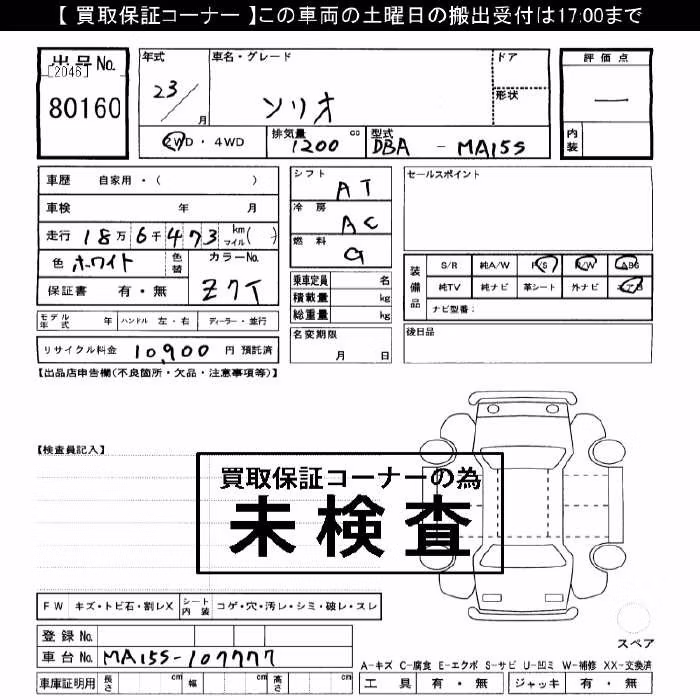 【 買取保証コーナー 】この車両の土曜日の搬出受付は17:00まで
出品No.
[2046]
80160
年式 23 月
車名・グレード
ソリオ
ドア
形状
評価点
一
内装
2WD・4WD
排気量 1200 cc
型式 DBA - MA15S
車歴 自家用・( )
車検 年 月
走行 18万6千473 km マイル( )
色 ホワイト 色替
カラーNo. Z7T
保証書 有・無
シフト AT
冷房 AC
燃料 G
乗車定員 名
積載量 kg
総重量 kg
セールスポイント
装備品
S/R 純A/W P/S P/W ABS
純TV 純ナビ 革シート 外ナビ エアB
ナビ型番:
モデル年式 年 ハンドル 左・右 ディーラー・並行
名変期限
月 日
後日品
リサイクル料金 10,900 円 預託済
【出品店申告欄(不良箇所・欠品・注意事項等)】
【検査員記入】
買取保証コーナーの為
未検査
FW キズ・トビ石・割レX シート内装 コゲ・穴・汚レ・シミ・破レ・スレ
登録No.
車台No. MA15S-107777
スペア
A-キズ C-腐食 E-エクボ S-サビ U-凹ミ W-補修 XX-交換済
車庫証明用 長さ cm 幅 cm 高さ cm
工具 有・無 ジャッキ 有・無